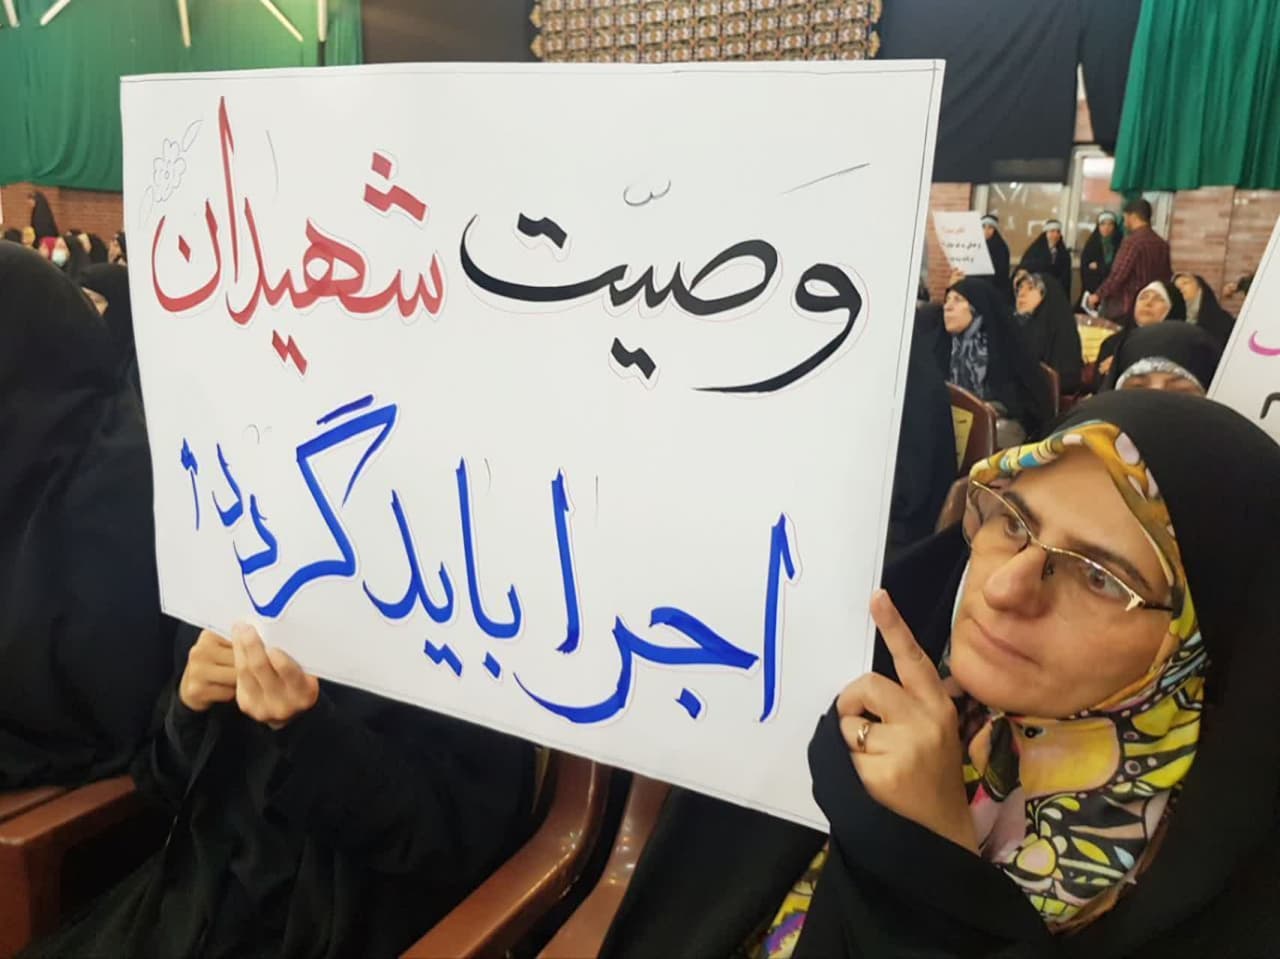 وَصیّت شهیدان
اجرا باید گردد